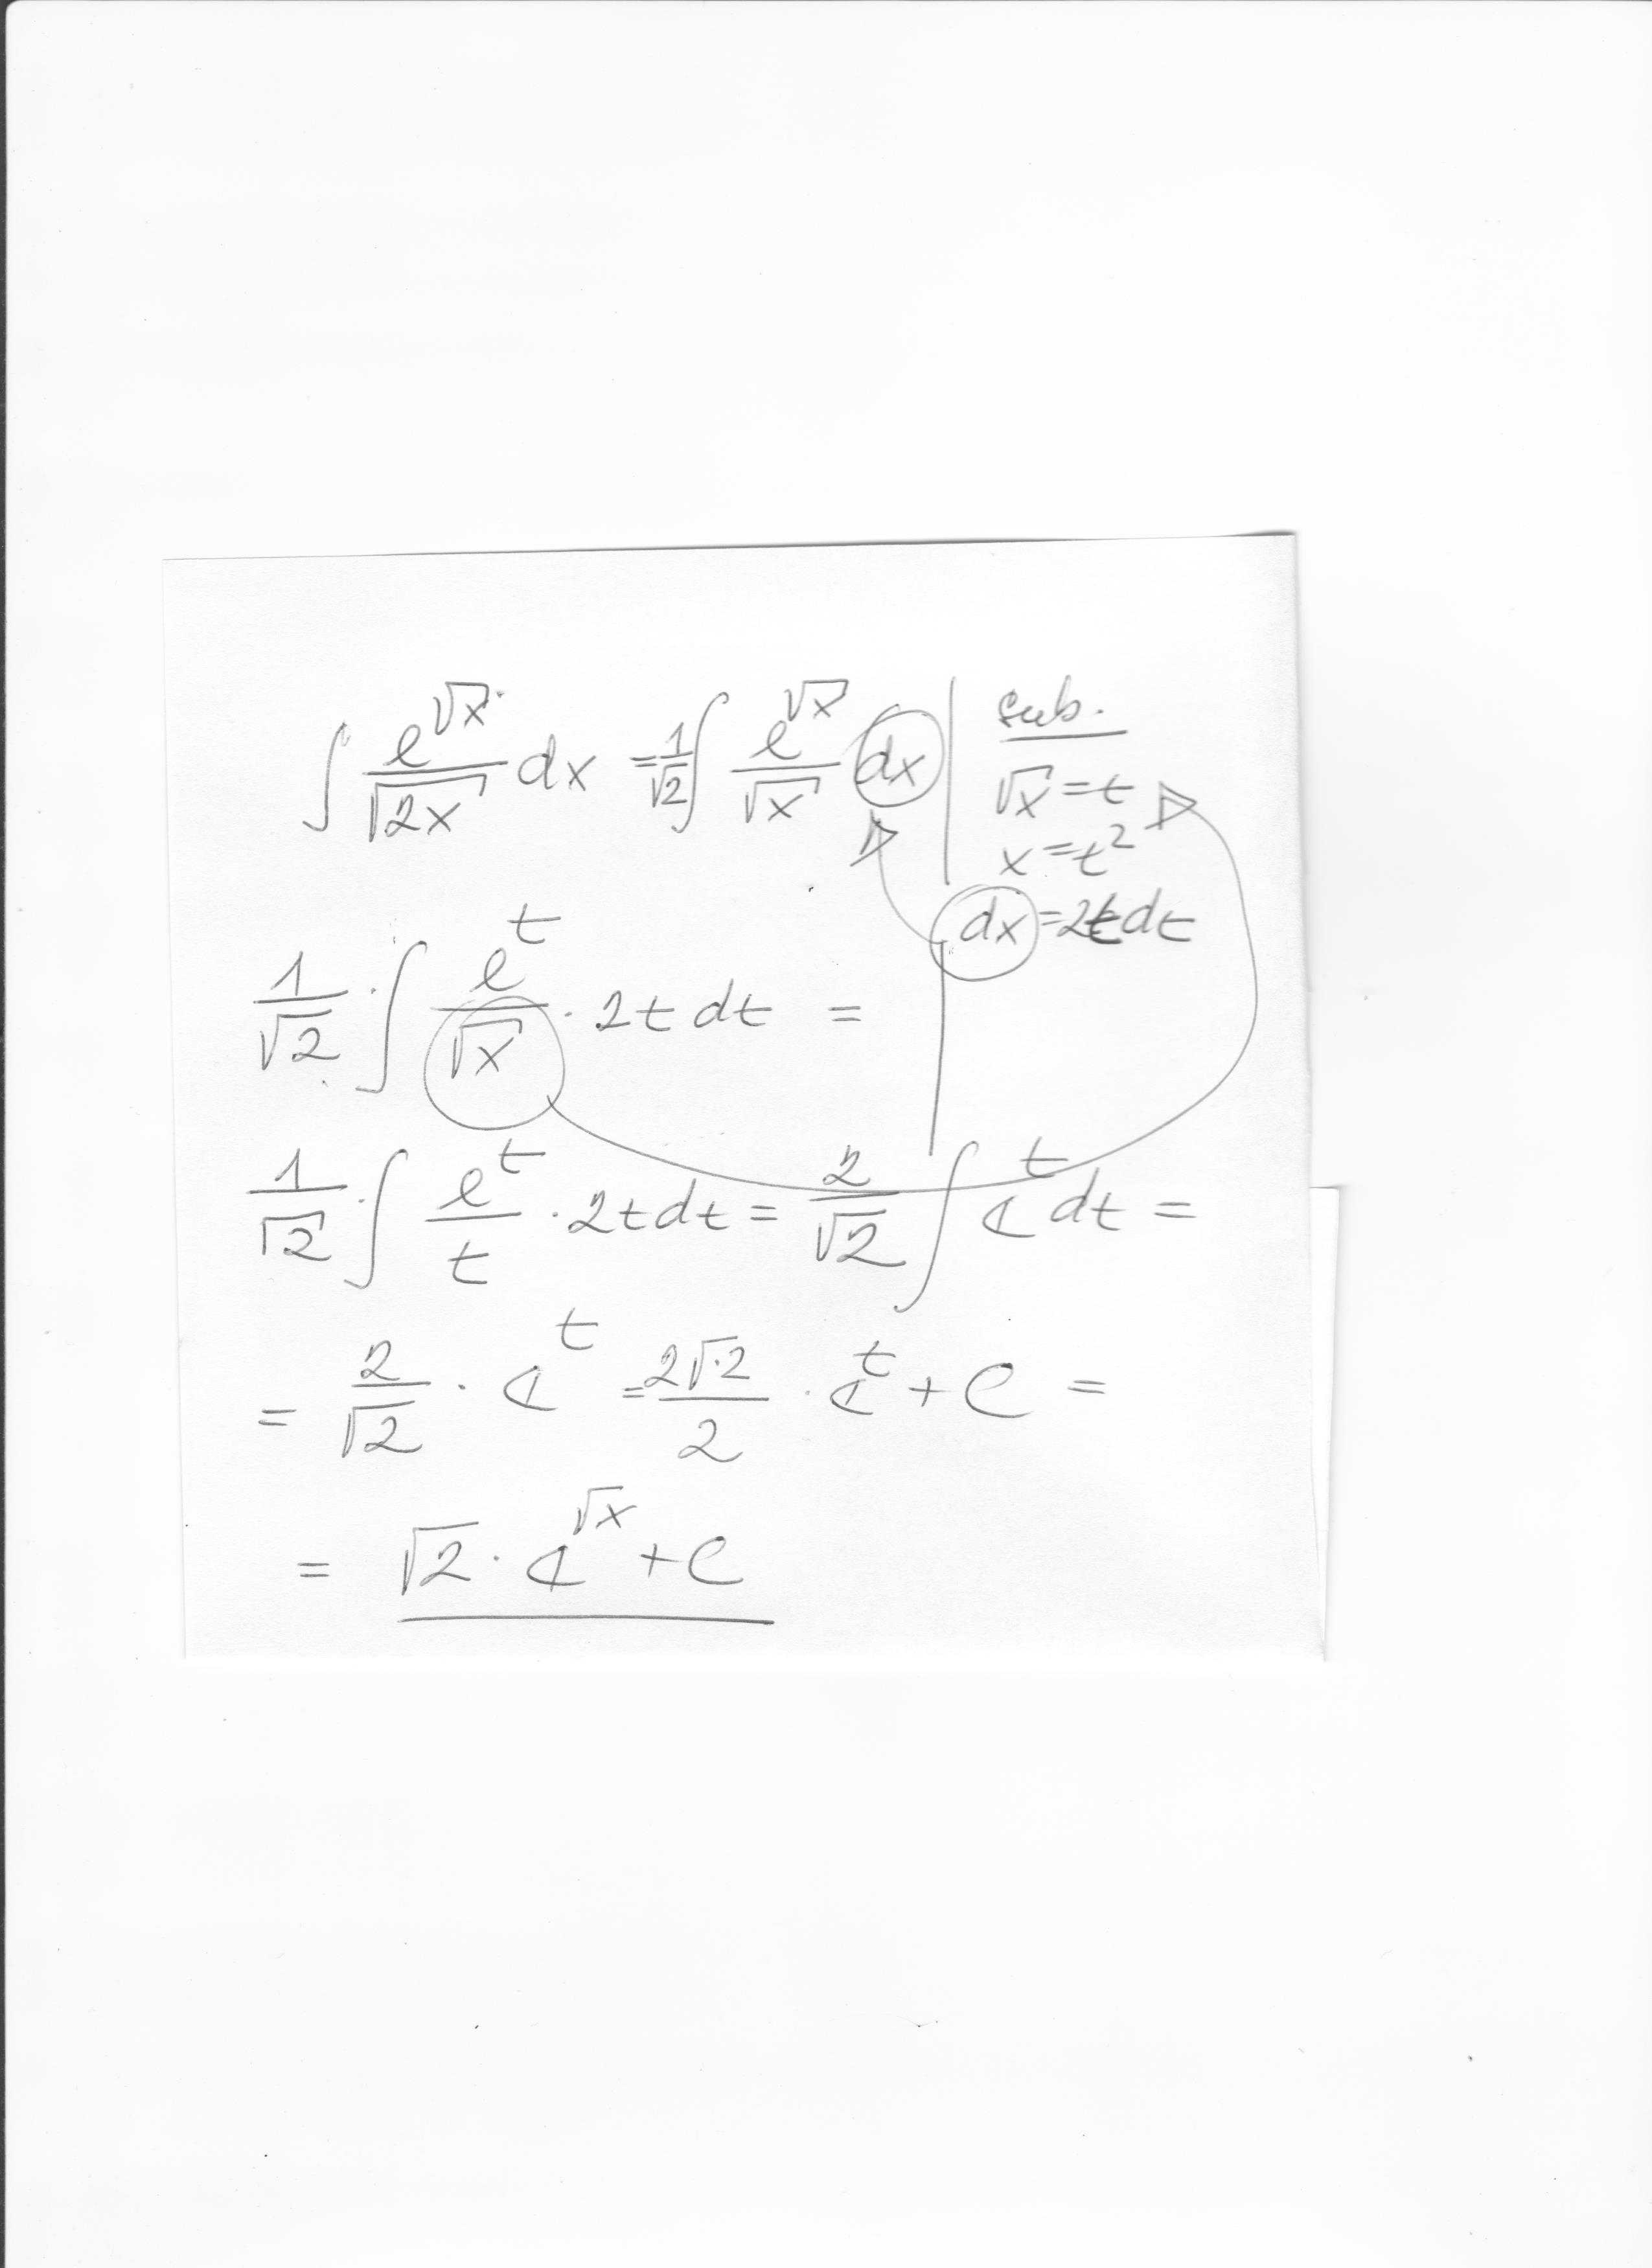 ∫ e^√x / √2x dx = 1/√2 ∫ e^√x / √x dx | sub.
√x = t
x = t²
dx = 2t dt
1/√2 · ∫ e^t / √x · 2t dt =
1/√2 · ∫ e^t / t · 2t dt = 2/√2 ∫ e^t dt =
= 2/√2 · e^t = 2√2 / 2 · e^t + C =
= √2 · e^√x + C